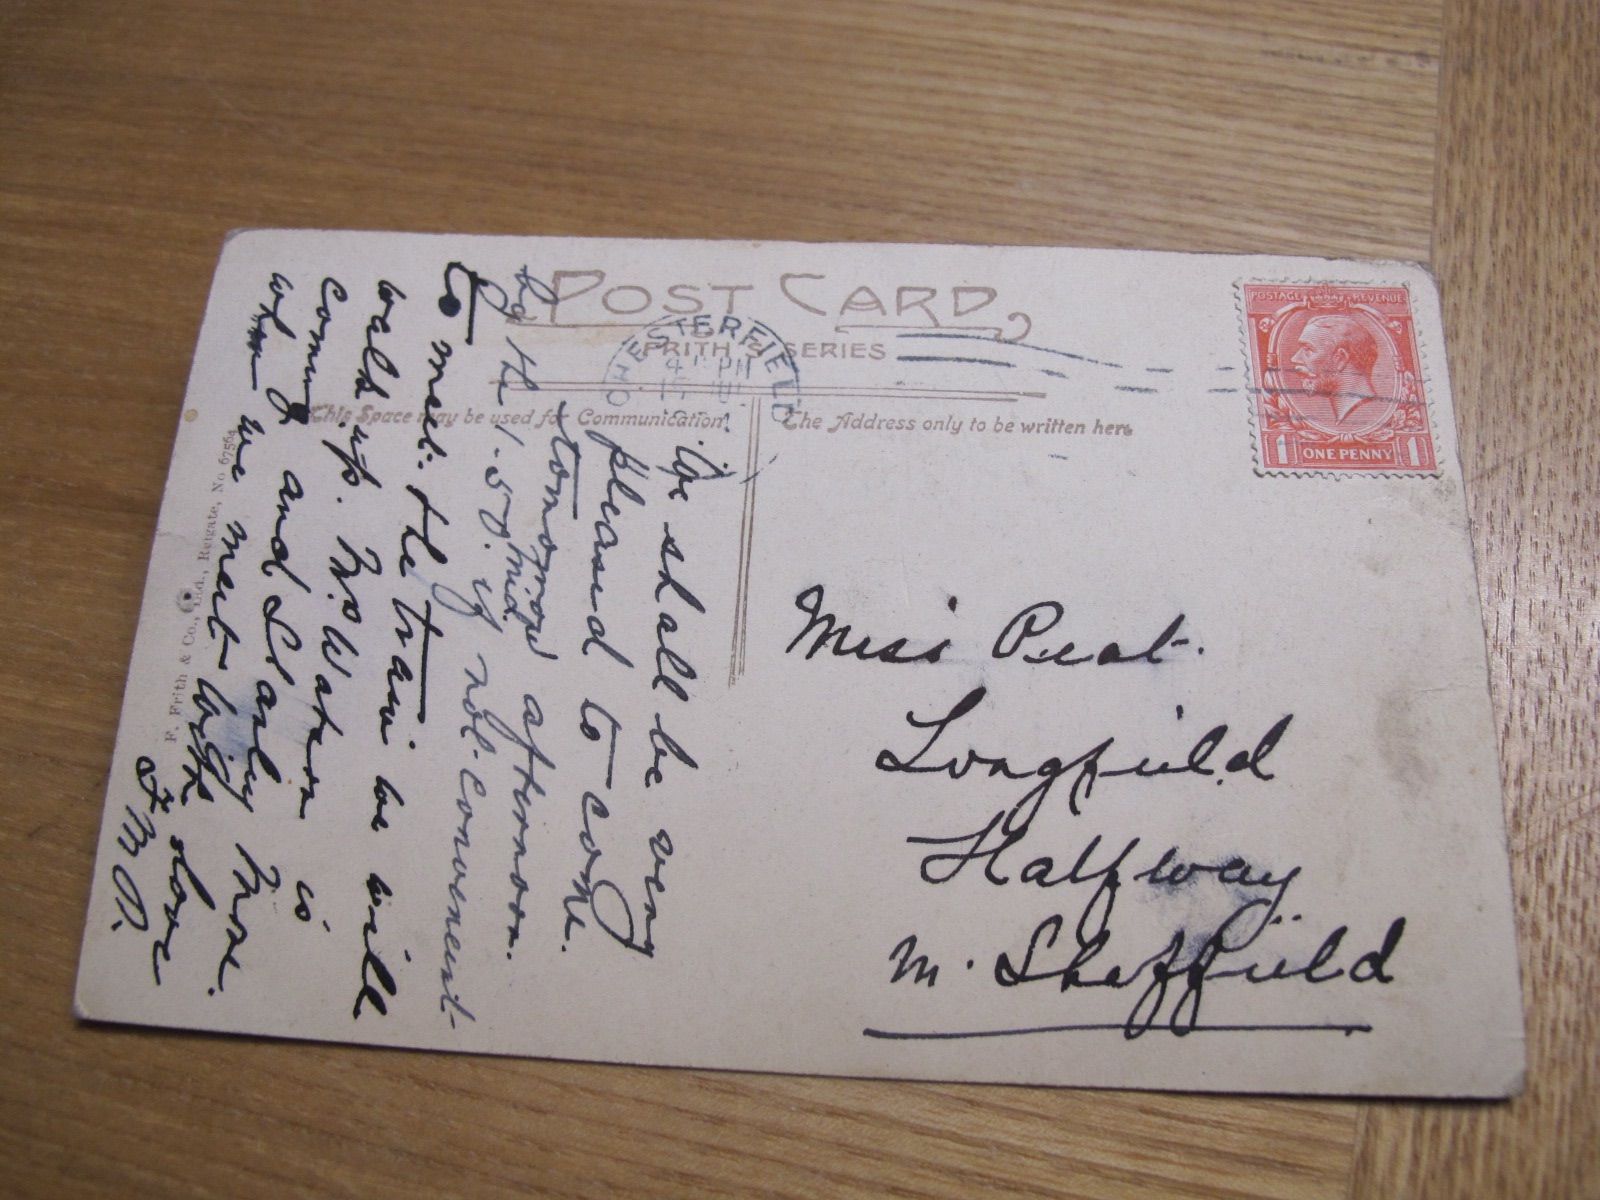 POST CARD
FRITH'S SERIES
CHESTERFIELD
4 PM
This Space may be used for Communication.
The Address only to be written here
POSTAGE REVENUE
1 ONE PENNY 1
We shall be very
pleased to come
tomorrow afternoon.
by the 1.50. if not convenient
mid
to meet the train we will
walk up. Mrs Waterson is
coming and
when we meet with love
F. Frith & Co., Ltd., Reigate, No. 67564
Miss Peat.
Longfield
Halfway
Nr. Sheffield